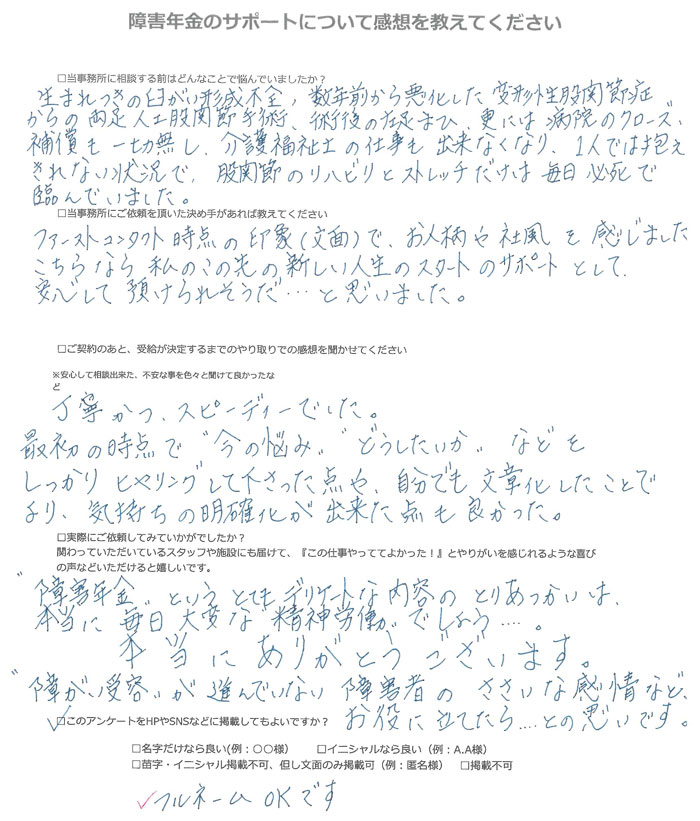 障害年金のサポートについて感想を教えてください
□当事務所に相談する前はどんなことで悩んでいましたか？
生まれつきの臼がい形成不全、数年前から悪化した変形性股関節症
からの両足人工股関節手術、術後の左足まひ、更には病院のクローズ、
補償も一切無し、介護福祉士の仕事も出来なくなり、1人では抱え
きれない状況で、股関節のリハビリとストレッチだけは毎日必死で
臨んでいました。
□当事務所にご依頼を頂いた決め手があれば教えてください
ファーストコンタクト時点の印象(文面)で、お人柄や社風を感じました
こちらなら私のこの先の新しい人生のスタートのサポートとして、
安心して預けられそうだ…と思いました。
□ご契約のあと、受給が決定するまでのやり取りでの感想を聞かせてください
※安心して相談出来た、不安な事を色々と聞けて良かったな
ど
丁寧かつ、スピーディーでした。
最初の時点で"今の悩み""どうしたいか"などを
しっかりヒヤリングして下さった点や、自分でも文章化したことで
より、気持ちの明確化が出来た点も良かった。
□実際にご依頼してみていかがでしたか？
関わっていただいているスタッフや施設にも届けて、『この仕事やっててよかった！』とやりがいを感じれるような喜び
の声などいただけると嬉しいです。
"障害年金"というとてもデリケートな内容のとりあつかいは、
本当に毎日大変な精神労働がでしょう…。
本当にありがとうございます。
"障がい受容"が進んでいない障害者のささいな感情など、
お役に立てたら…との思いです。
✓□このアンケートをHPやSNSなどに掲載してもよいですか？
□名字だけなら良い(例：〇〇様) □イニシャルなら良い（例：A.A様）
□苗字・イニシャル掲載不可、但し文面のみ掲載可（例：匿名様） □掲載不可
✓フルネームOKです